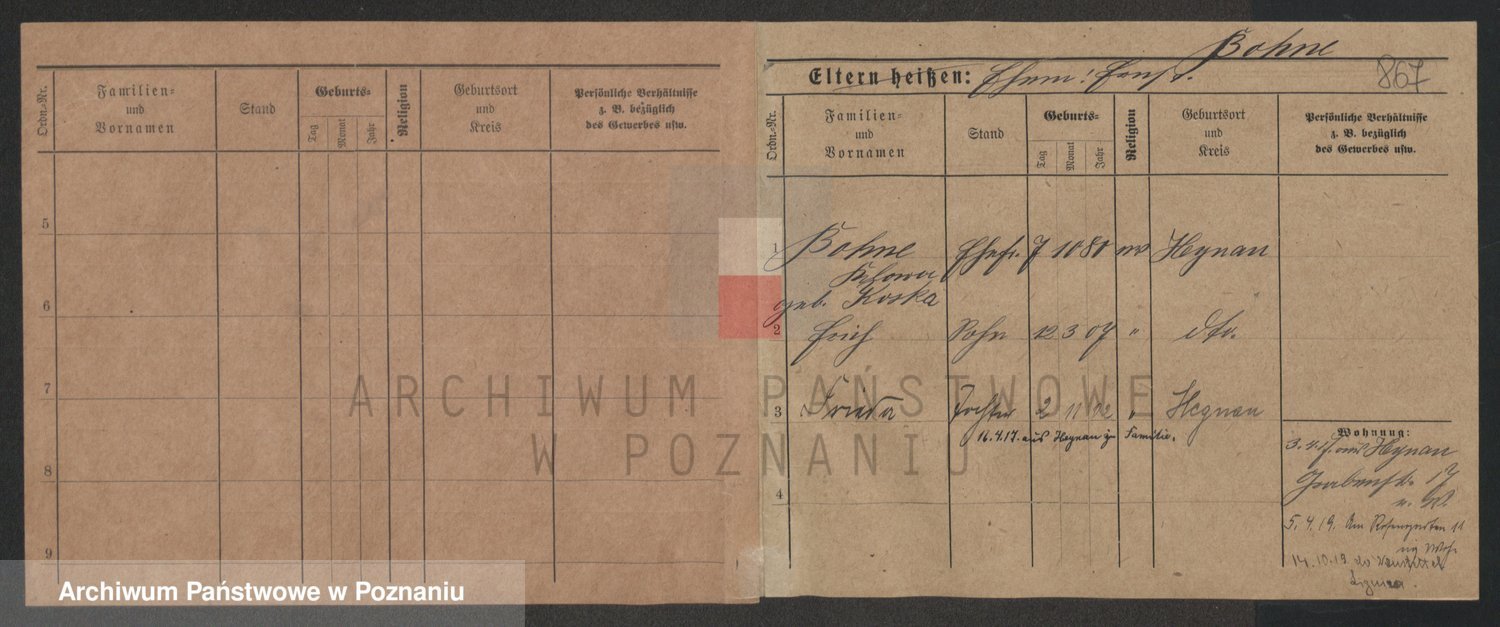 Ordn.-Nr.
Familien-
und
Vornamen
Stand
Geburts-
Tag
Monat
Jahr
Religion
Geburtsort
und
Kreis
Persönliche Verhältnisse
z. B. bezüglich
des Gewerbes usw.
5
6
7
8
9
Bohne
867
Eltern heißen: Ehem: Ernst.
Ordn.-Nr.
Familien-
und
Vornamen
Stand
Geburts-
Tag
Monat
Jahr
Religion
Geburtsort
und
Kreis
Persönliche Verhältnisse
z. B. bezüglich
des Gewerbes usw.
1 Bohne Ehefr. 7 10 80 Haynau
geb. Koska
2 Erich Sohn 12 3 07 " dto.
3 Frieda Tochter 2 11 02 " Haynau
16.4.17. aus Haynau z. Familie.
4
Wohnung:
3.4.17. aus Haynau
Grabenstr. 17
5.4.19. Am Rosengarten 11
14.10.19
ARCHIWUM PAŃSTWOWE
W POZNANIU
Archiwum Państwowe w Poznaniu